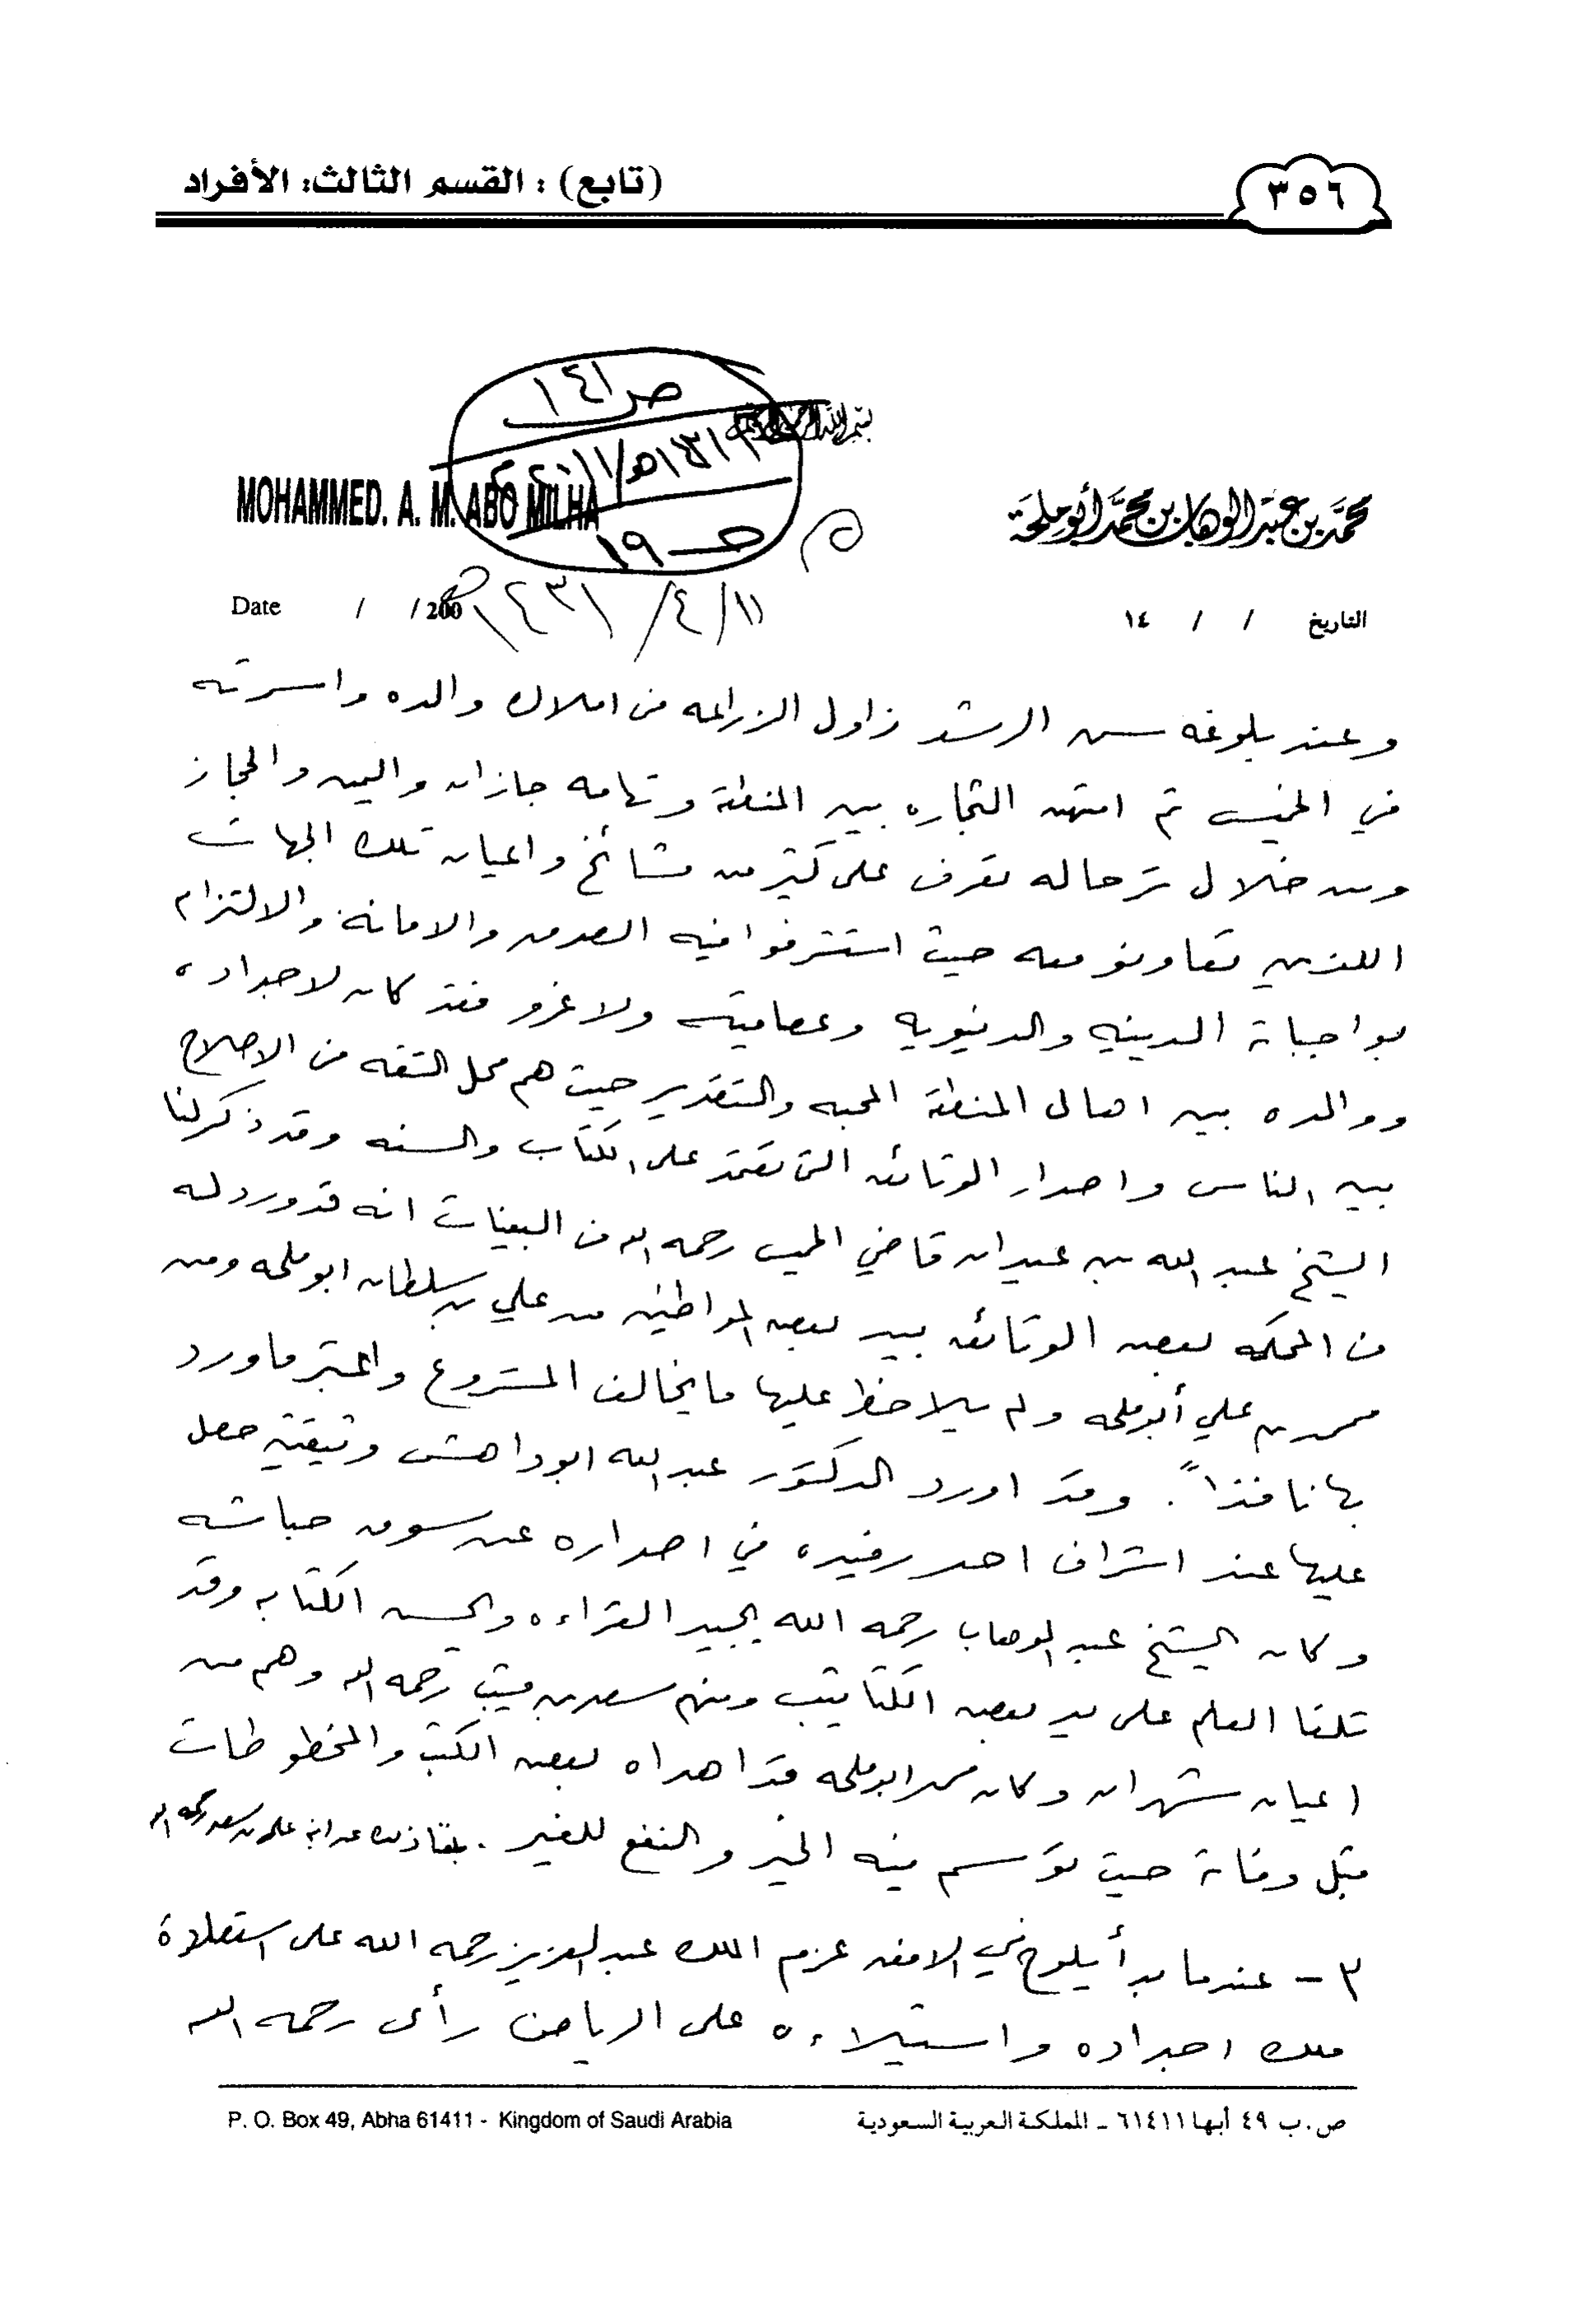 ٣٥٦
(تابع) : القسم الثالث: الأفراد
ص١٤١
بسم الله الرحمن الرحيم
١٤٣١هـ/٢٠١١م
MOHAMMED. A. M. ABO MILHA
محمد بن عبد الوهاب بن محمد أبو ملحة
ص ١٩
Date / / 200
١١/٤/١٤٣١
التاريخ / / ١٤
وعند بلوغه سن الرشد زاول الزراعه من املاك والده واسرته
في الخميس ثم امتهن التجاره بين المنطقة وتهامه جازان واليمن والحجاز
ومن خلال ترحاله تعرف على كثير من مشائخ واعيان تلك الجهات
اللذين تعاونو معه حيث استشرفوا فيه الصدق والامانة والالتزام
بواجباته الدينيه والدنيويه وعصاميته ولا غرو فقد كان لاجداده
ووالده بين اهالى المنطقة المحبه والتقدير حيث هم محل الثقه من الاصلاح
بين الناس واصدار الوثائق التى تعتمد على الكتاب والسنه وقد ذكر لنا
الشيخ عبد الله بن عميدان قاضي الخميس رحمه الله من البعينات انه قد ورد له
من المحكمه بعض الوثائق بيد بعض المواطنين من علي بن سلطان ابو ملحه ومن
محمد بن علي أبو ملحه ولم يلاحظ عليها ما يخالف المشروع واعتبر ما ورد
بها نافذاً. وقد اورد الدكتور عبد الله ابو داهش وثيقتين حصل
عليها عند اشراف احد رفيده في اصداره عن سوق حباشه
وكان الشيخ عبد الوهاب رحمه الله يجيد القراءه ويحسن الكتابه وقد
تلقا العلم على يد بعض الكتاتيب ومنهم سعد بن رحمه الله وهم من
اعيان شهران وكان محمد ابو ملحه قد اهداه بعض الكتب والمخطوطات
قبل وفاته حيث توسم فيه الخير والنفع للغير . بلغنا ذلك عن ابنه علي بن سعد رحمه الله
٣ - عندما بدأ يلوح في الافق عزم الملك عبد العزيز رحمه الله على استعادة
ملك اجداده واستيلاءه على الرياض رأى رحمه الله
P. O. Box 49, Abha 61411 - Kingdom of Saudi Arabia
ص.ب ٤٩ أبها ٦١٤١١ - المملكة العربية السعودية